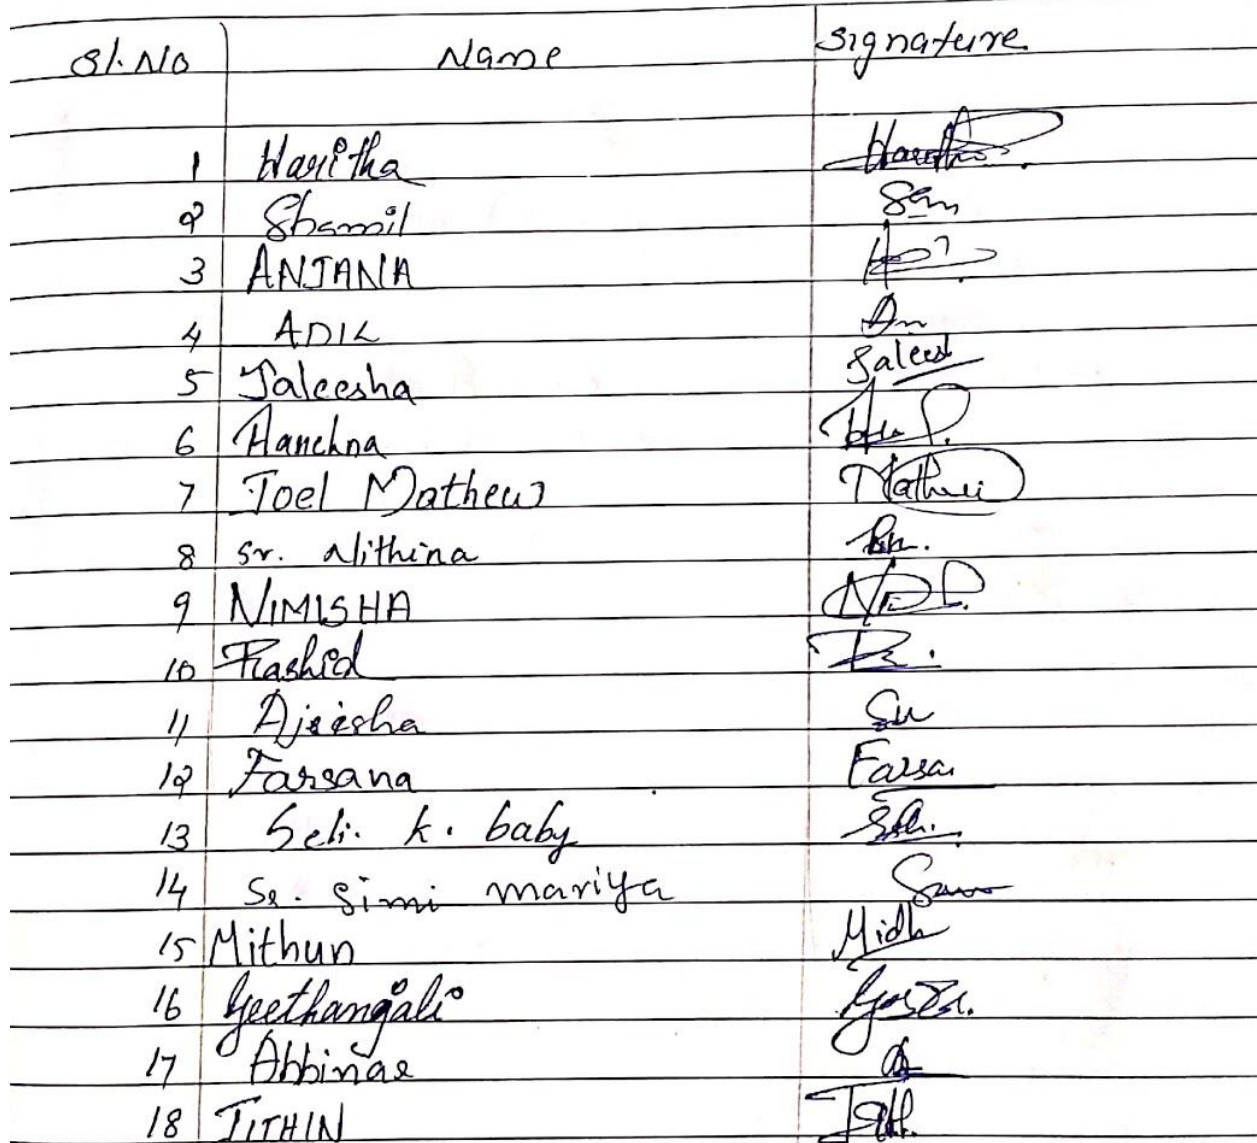 Sl. No Name Signature
1 Haritha Haritha
2 Shamil Sam
3 ANJANA
4 ADIL
5 Jaleesha Jalees
6 Hanchna
7 Joel Mathew Mathew
8 Sr. Nithina
9 NIMISHA
10 Rashid
11 Ajeesha
12 Farsana Farsa
13 Seli. k. baby Seli.
14 Sr. Simi mariya
15 Mithun Midh
16 Geethangali
17 Abhinav
18 JITHIN Jith.